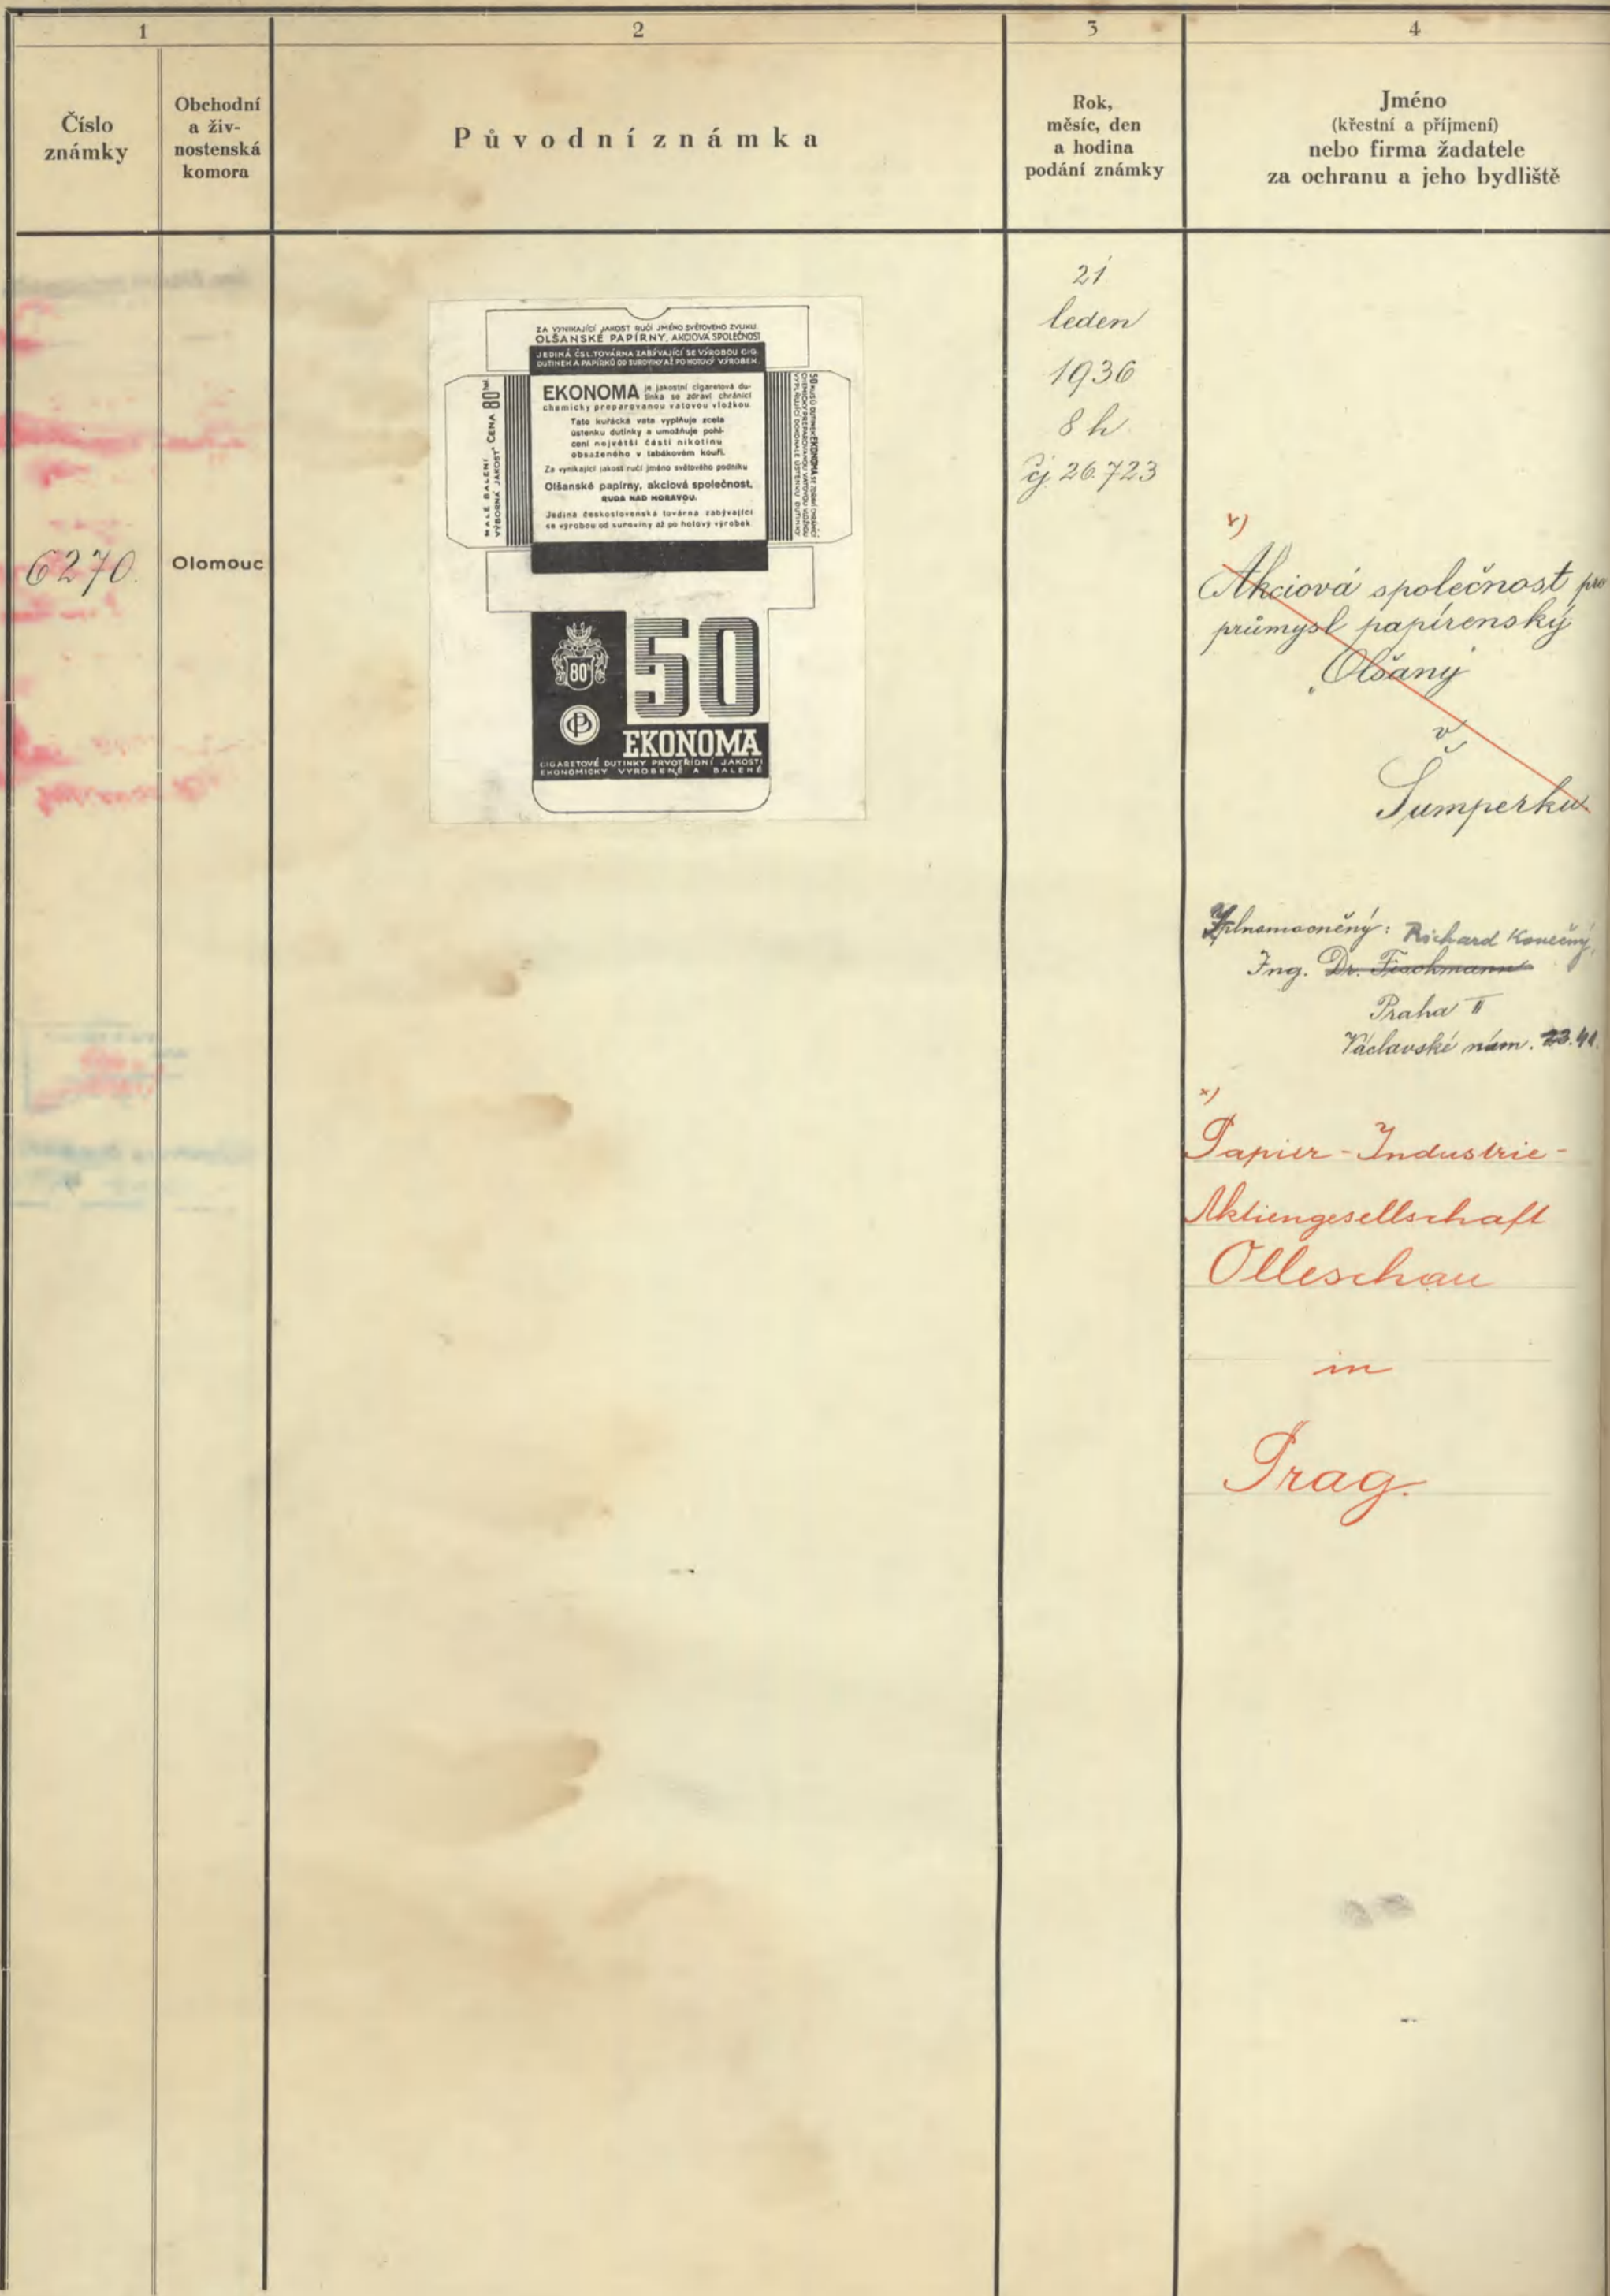 1
2
3
4
Číslo
známky
Obchodní
a živ-
nostenská
komora
Původní známka
Rok,
měsíc, den
a hodina
podání známky
Jméno
(křestní a příjmení)
nebo firma žadatele
za ochranu a jeho bydliště
6270.
Olomouc
ZA VYNIKAJÍCÍ JAKOST RUČÍ JMÉNO SVĚTOVÉHO ZVUKU
OLŠANSKÉ PAPÍRNY, AKCIOVÁ SPOLEČNOST
JEDINÁ ČSL. TOVÁRNA ZABÝVAJÍCÍ SE VÝROBOU CIG.
DUTINEK A PAPÍRKŮ OD SUROVINY AŽ PO HOTOVÝ VÝROBEK.
MALÉ BALENÍ
VÝBORNÁ JAKOST - CENA 80 hal.
EKONOMA je jakostní cigaretová du-
tinka se zdraví chránící
chemicky preparovanou vatovou vložkou.
Tato kuřácká vata vyplňuje zcela
ústenku dutinky a umožňuje pohl-
cení největší části nikotinu
obsaženého v tabákovém kouři.
Za vynikající jakost ručí jméno světového podniku
Olšanské papírny, akciová společnost,
RUDA NAD MORAVOU.
Jediná československá továrna zabývající
se výrobou od suroviny až po hotový výrobek
50 KUSŮ DUTINEK EKONOMA SE ZDRAVÍ CHRÁNÍCÍ
CHEMICKY PREPAROVANOU VATOVOU VLOŽKOU
VYPLŇUJÍCÍ DOKONALE ÚSTENKU DUTINKY
80h
50
EKONOMA
CIGARETOVÉ DUTINKY PRVOTŘÍDNÍ JAKOSTI
EKONOMICKY VYROBENÉ A BALENÉ
21
leden
1936
8 h.
čj. 26.723
x)
Akciová společnost pro
průmysl papírenský
"Olšany"
v
Šumperku.
Zplnomocněný: Richard Konečný,
Ing. Dr. Fischmann
Praha II
Václavské nám. 23. 41.
x)
Papier-Industrie-
Aktiengesellschaft
Olleschau
in
Prag.